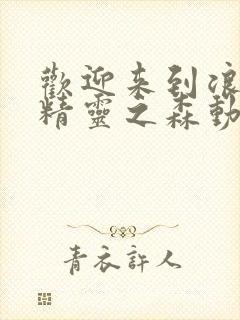 歡迎來到浪
精靈之森動
青衣許人